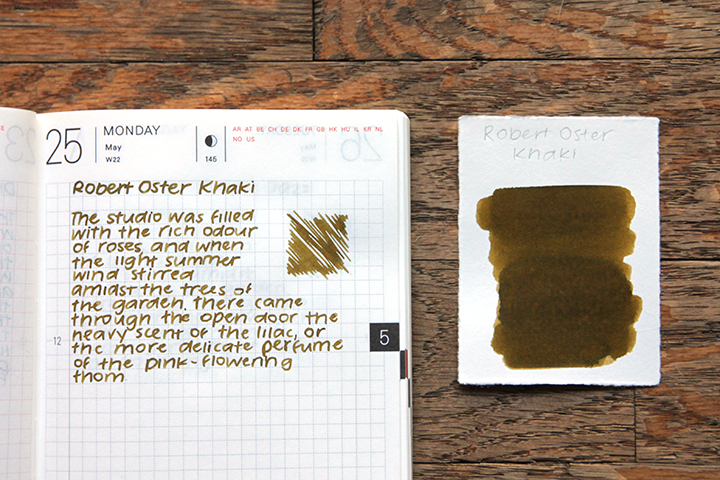 25
MONDAY
May
W22
145
AR AT BE CH DE DK FR GB HK HU IL KR NL
NO US
Robert Oster Khaki
The studio was filled
with the rich odour
of roses, and when
the light summer
wind stirred
amidst the trees of
the garden, there came
through the open door the
heavy scent of the lilac, or
the more delicate perfume
of the pink-flowering
thorn
12
5
Robert Oster
Khaki